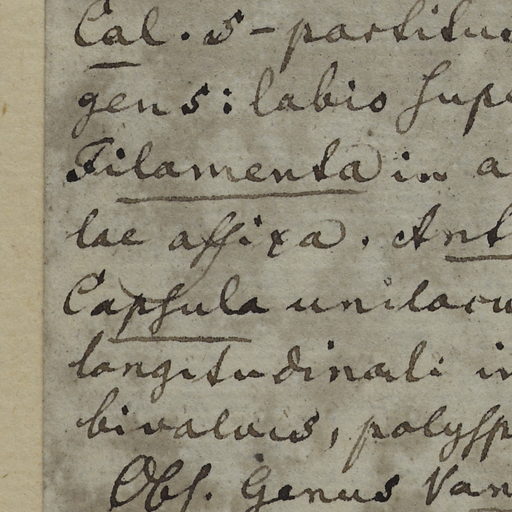 Cal. 5-partitus
gens: labio supe
Filamenta in a
lae affixa. Ant
Capsula unilocu
longitudinali in
bivalvis, polysp
Obs. Genus Van